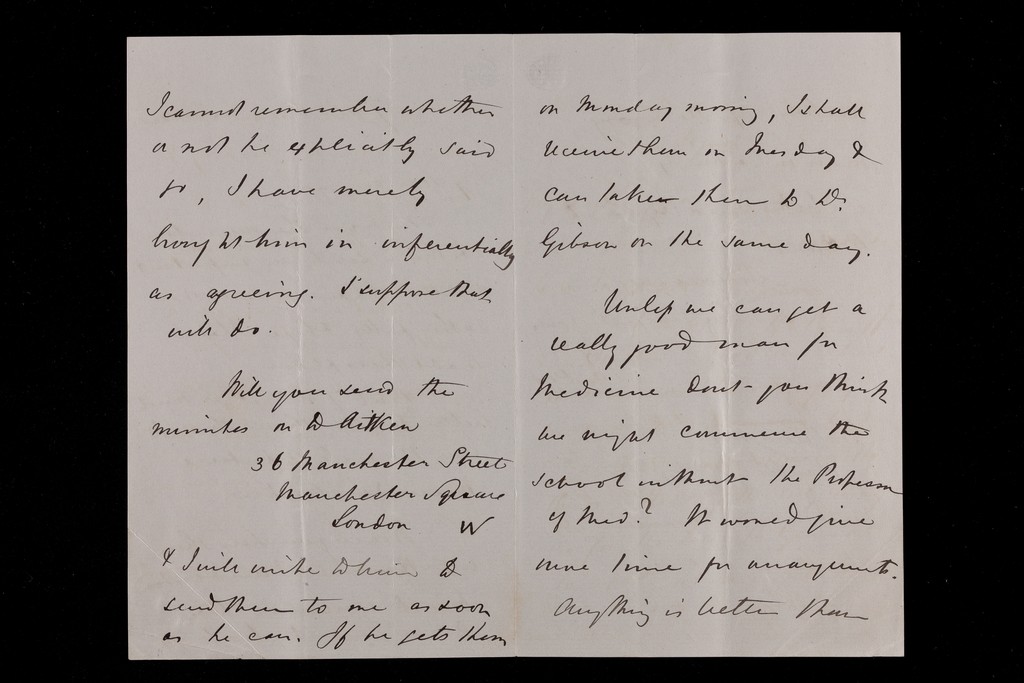 I cannot remember whether
or not he explicitly said
so, I have merely
brought him in inferentially
as agreeing. I suppose that
will do.
Will you send the
minutes on to Aitken
36 Manchester Street
Manchester Square
London W
& I will write to him to
send them to me as soon
as he can. If he gets them
on Monday morning, I shall
receive them on Tuesday &
can take them to Dr.
Gibson on the same day.
Unless we can get a
really good man for
Medicine dont you think
we might commence the
school without the Professor
of Med.? It would give
more time for arrangements.
Anything is better than